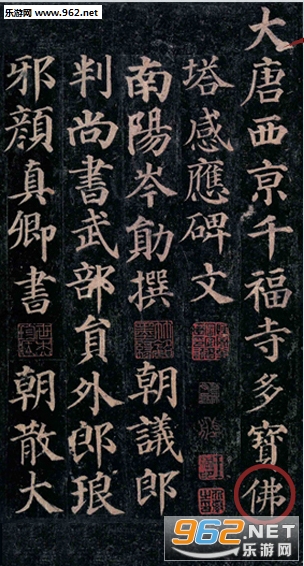 乐游网
www.962.net
大唐西京千福寺多寶佛
塔感應碑文
南陽岑勛撰 朝議郎
判尚書武部員外郎琅
邪顏真卿書 朝散大
962.NET
乐游网